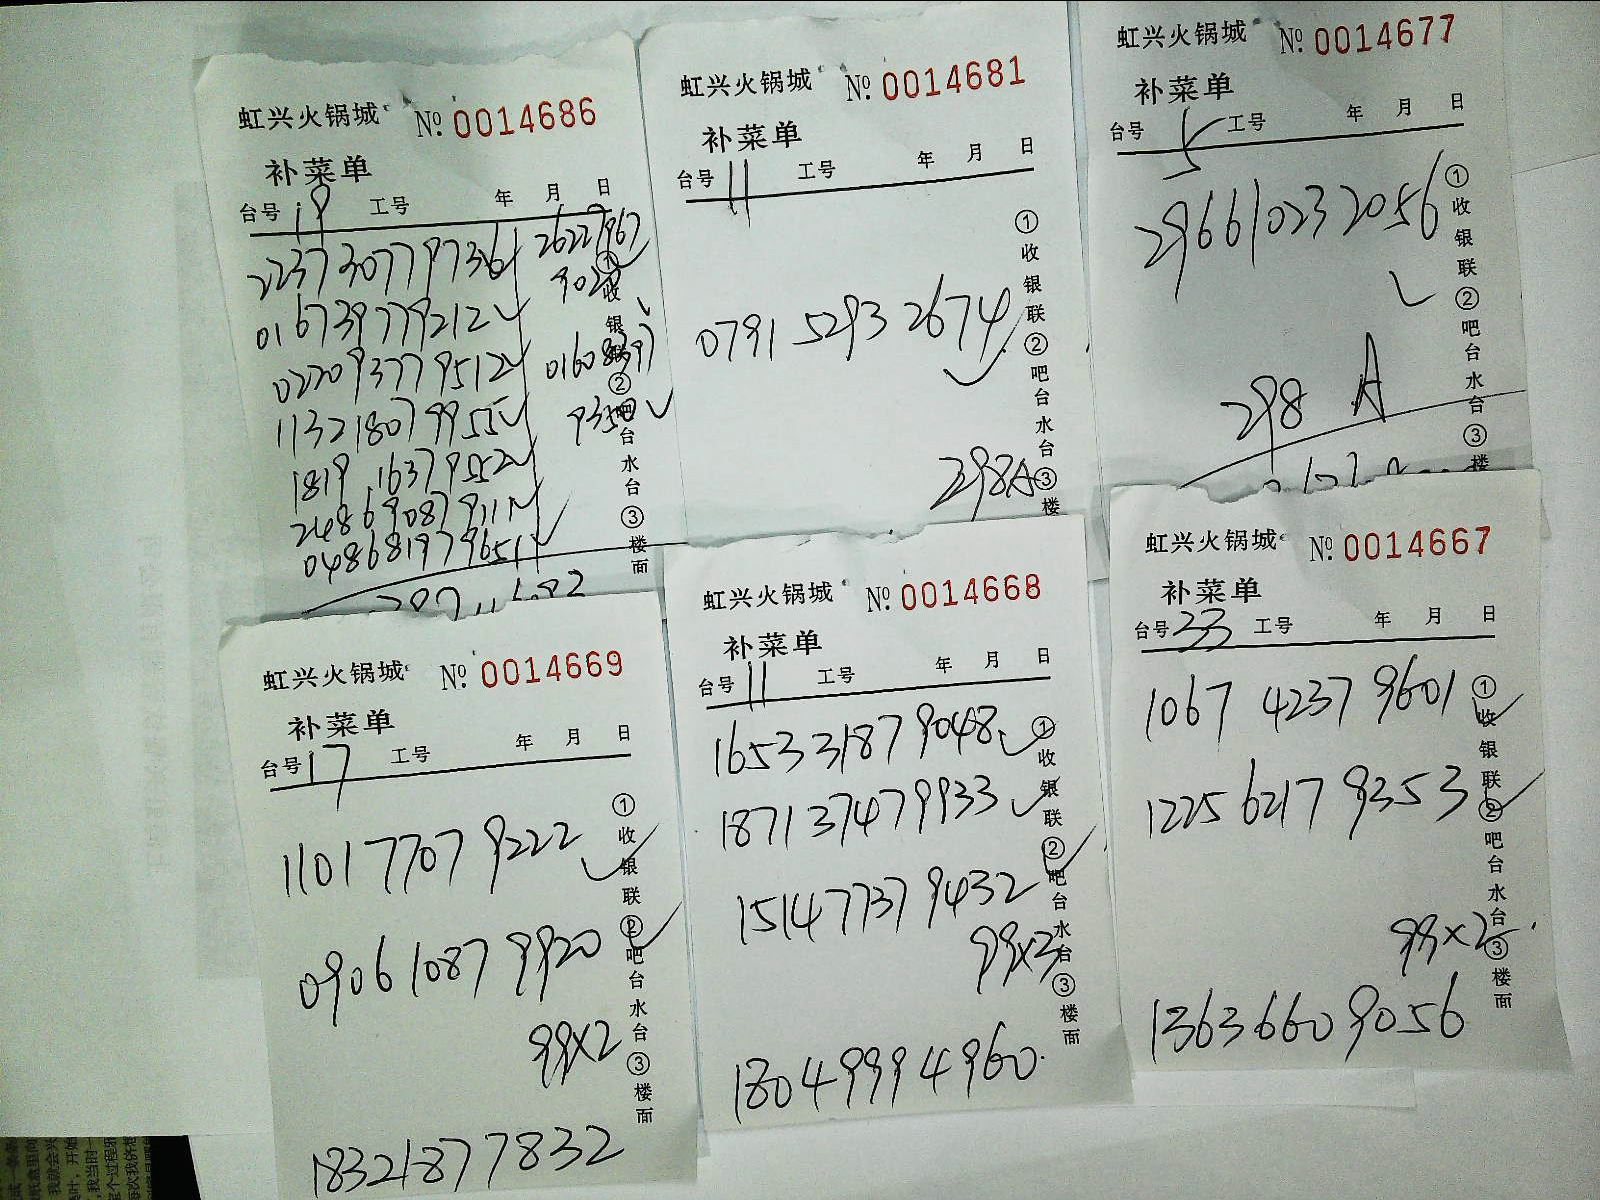 虹兴火锅城 №: 0014686
补菜单
台号 19 工号 年 月 日
2237 3077 9736
2622 7967
902
0167 3977 9212
0220 9377 9512
0160 8397
1132 1807 9955
935
1819 1637 9552
2486 9087 9111
0486 8197 9651
①收银联②吧台水台③楼面
虹兴火锅城 №: 0014681
补菜单
台号 11 工号 年 月 日
0791 5293 2674
298A
①收银联②吧台水台③楼
虹兴火锅城 №: 0014677
补菜单
台号 5 工号 年 月 日
2966 1023 2056
298 A
①收银联②吧台水台③楼
虹兴火锅城 №: 0014669
补菜单
台号 17 工号 年 月 日
1101 7707 9222
0906 1087 9920
99×2
18321877832
①收银联②吧台水台③楼面
虹兴火锅城 №: 0014668
补菜单
台号 11 工号 年 月 日
1653 3187 9048
1871 3747 9933
1514 7737 9432
99×3
18049994960
①收银联②吧台水台③楼面
虹兴火锅城 №: 0014667
补菜单
台号 33 工号 年 月 日
1067 4237 9601
1225 6217 9353
99×2
13636609056
①收银联②吧台水台③楼面